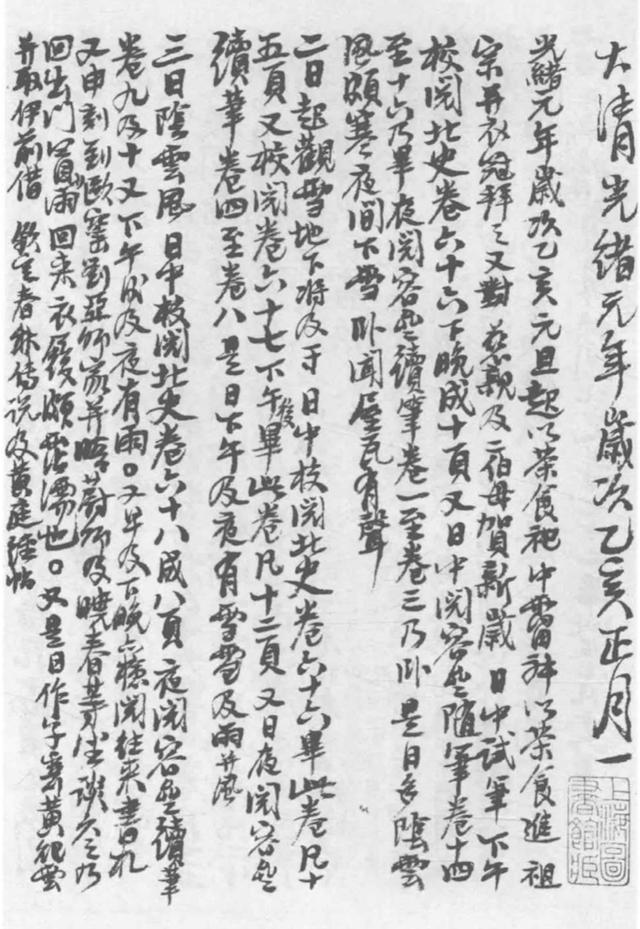 大清光緒元年歲次乙亥正月一
光緒元年歲次乙亥元旦起以茶食祀中霤神以茶食進祖
宗并衣冠拜之又對慈親及二伯母賀新歲日中試筆下午
校閱北史卷六十六下晚成十頁又日中閱容齋隨筆卷十四
至十六乃畢夜閱容齋續筆卷一至卷三乃卧是日多陰雲
風頗寒夜間下雪卧聞屋瓦有聲
二日起觀雪地下將及寸日中校閱北史卷六十六畢此卷凡十
五頁又校閱卷六十七下午後畢此卷凡十二頁又日夜閱容齋
續筆卷四至卷八是日下午及夜有雪雪及雨并風
三日陰雲風日中校閱北史卷六十八成八頁夜閱容齋續筆
卷九及十又下午後及夜有雨又早及下晚檢閱往來書札
又申刻到歐窯劉亞師家并晤蔚師及曉春等坐談久之乃
回出門冒雨回來衣履頗霑濡也又是日作字寄黃
并取伊前借欽定春秋傳說及黃庭經帖
上海圖書館藏